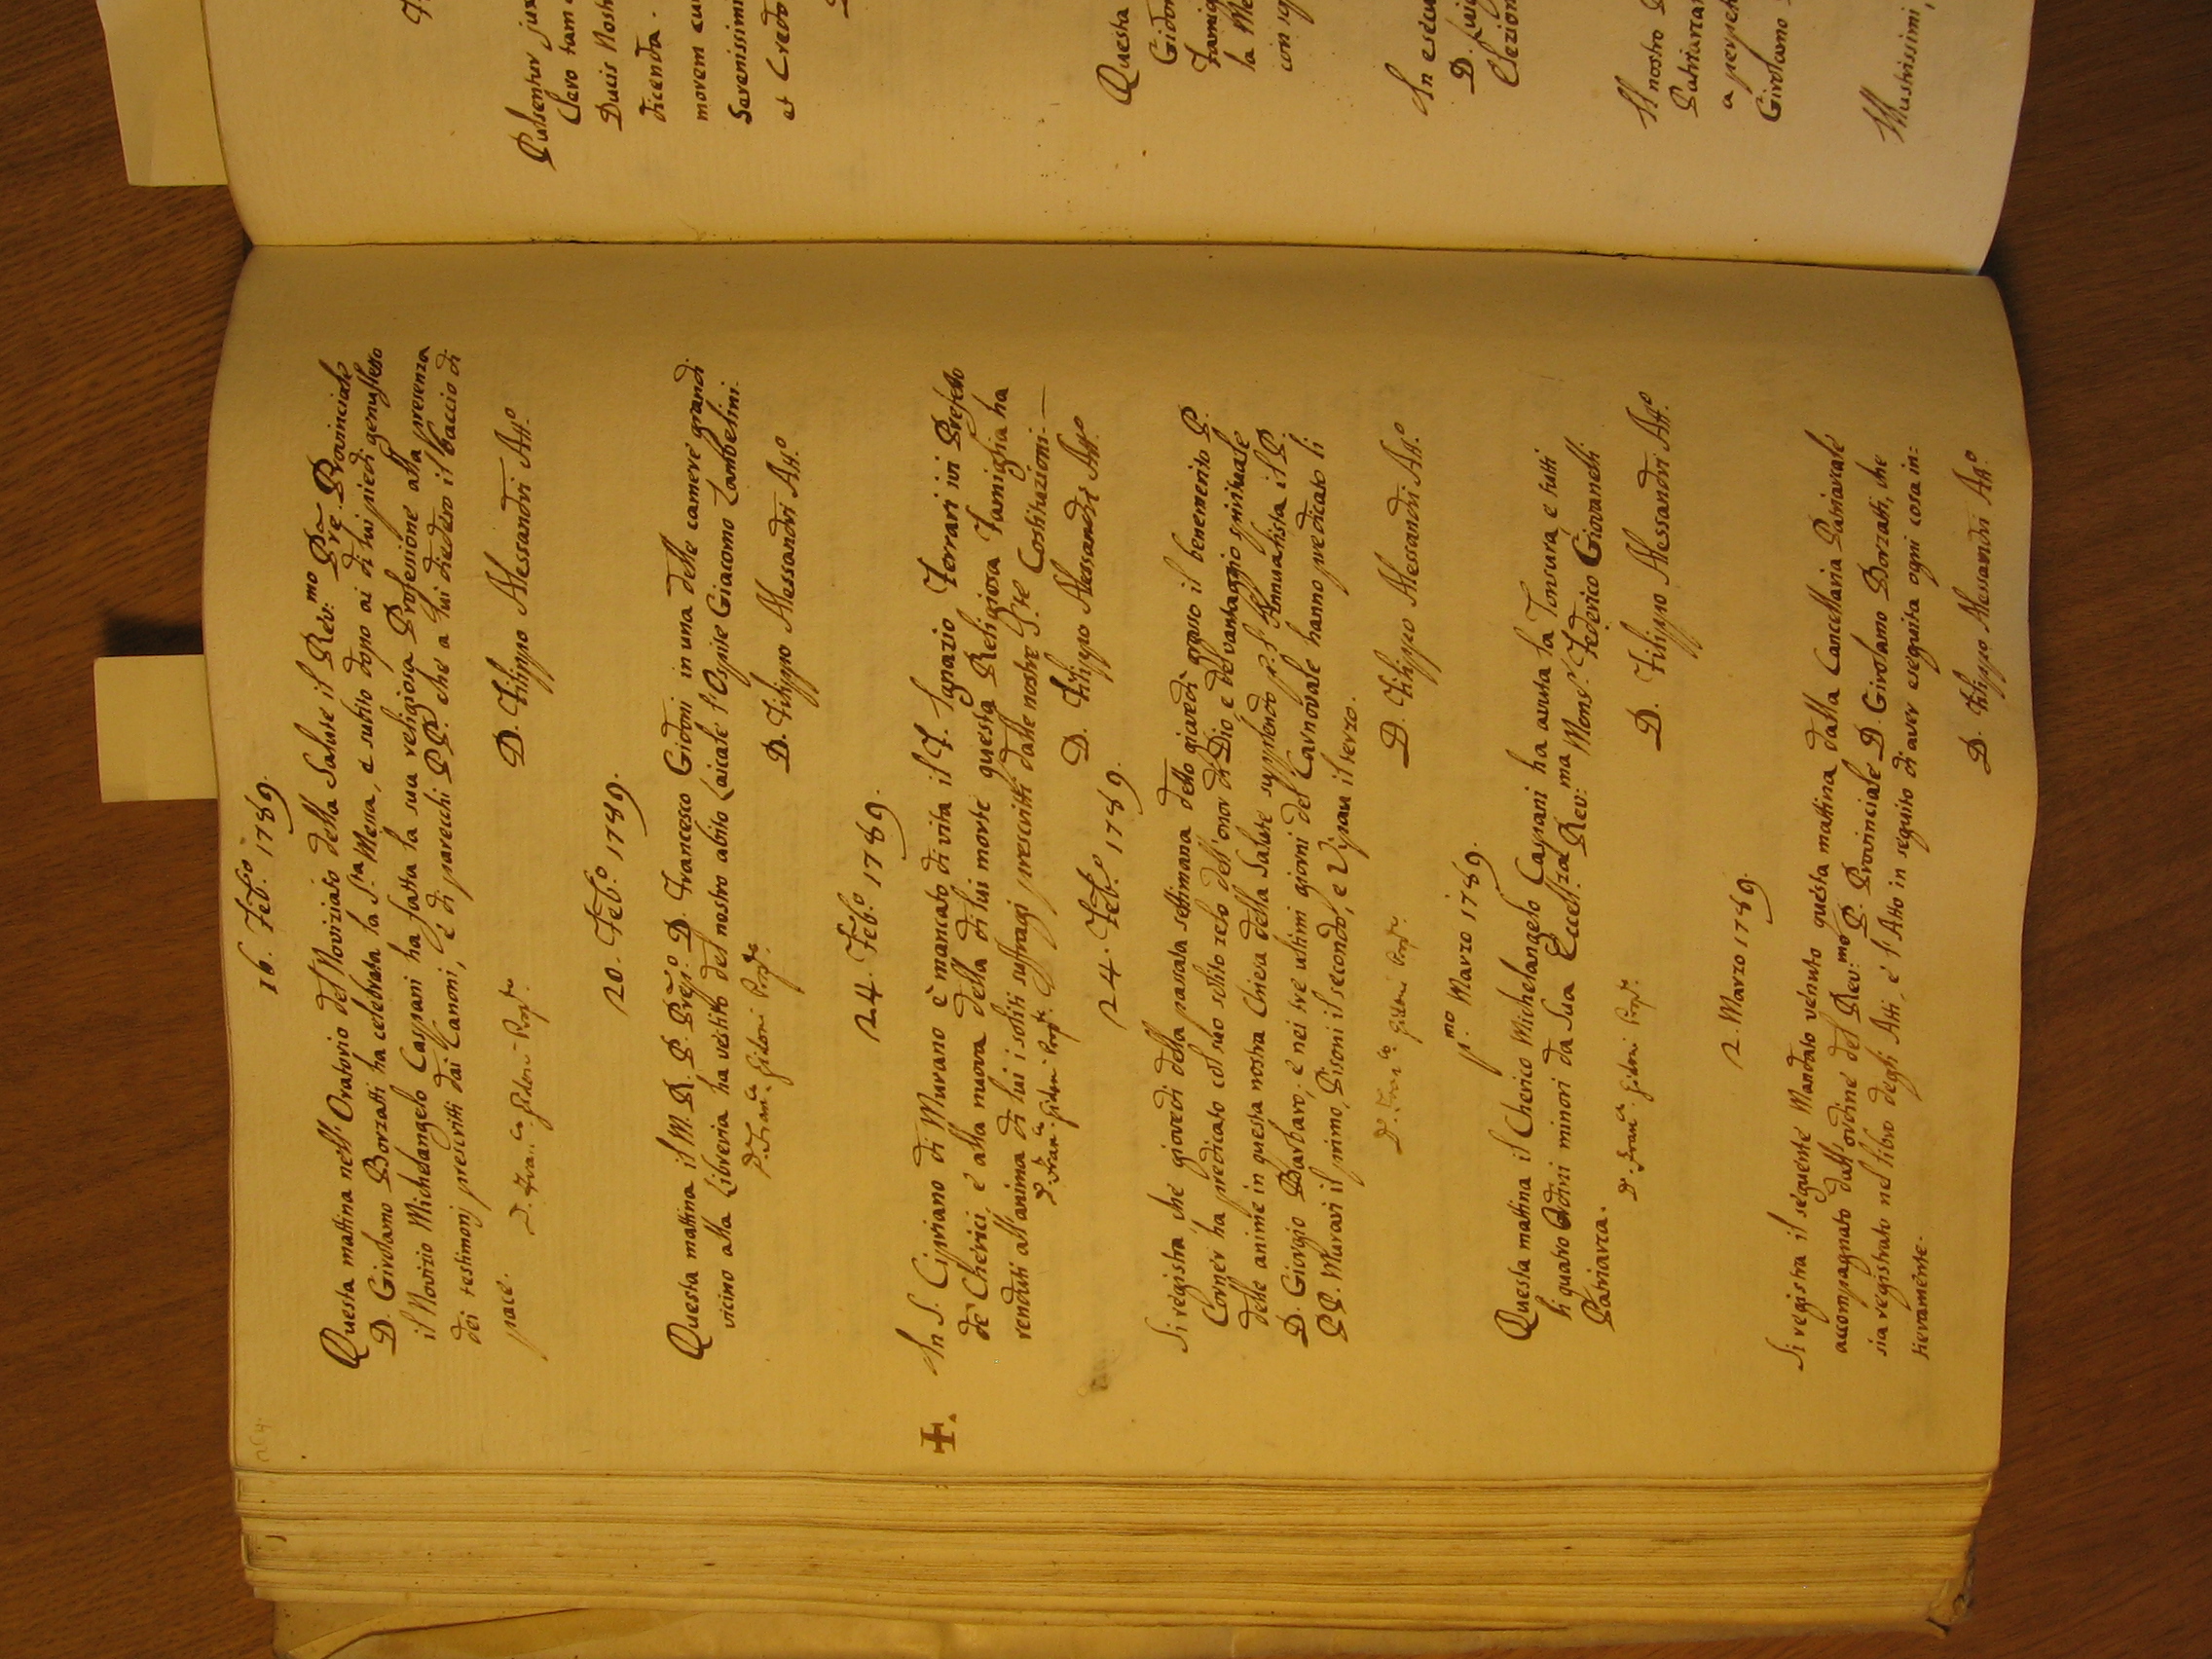 16. Feb.o 1789.
Questa mattina nell'Oratorio del Noviziato della Salute il Rev:mo Pre Provinciale
D. Girolamo Borzatti ha celebrata la S.ta Messa, e subito dopo ai di lui piedi genuflesso
il Novizio Michelangelo Caspani ha fatta la sua religiosa Professione alla presenza
dei testimonj prescritti dai Canoni, e di parecchi PP. che a lui diedero il baccio di
pace.
D. Filippo Alessandri Att.o
D. Fran.co Gidoni Prep.to
20. Feb.o 1789.
Questa mattina il M. R. P. Prep.o D. Francesco Gidoni in una delle camere grandi
vicino alla Libreria ha vestito del nostro abito Laicale l'Ospite Giacomo Lambelini.
D. Filippo Alessandri Att.o
D. Fran.co Gidoni Prep.to
24. Feb.o 1789.
+. In S. Cipriano di Murano è mancato di vita il F. Ignazio Ferrari ivi Prefetto
de' Cherici, e alla nuova della di lui morte questa Religiosa Famiglia ha
renduti all'anima di lui i soliti suffragi prescritti dalle nostre S.te Costituzioni.—
D. Filippo Alessandri Att.o
D. Fran.co Gidoni Prep.to
24. Feb.o 1789.
Si registra che giovedì della passata settimana detto giovedì grasso il benemerito P.
Corner ha predicato col suo solito zelo dell'onor di Dio, e del vantaggio spirituale
delle anime in questa nostra Chiesa della Salute supplendo p. l'Annualista il P.
D. Giorgio Barbaro, e nei tre ultimi giorni del Carnovale hanno predicato li
PP. Murari il primo, Pisoni il secondo, e Vipau il terzo.
D. Filippo Alessandri Att.o
D. Fran.co Gidoni Prep.to
p.mo Marzo 1789.
Questa mattina il Cherico Michelangelo Caspani ha avuta la Tonsura, e tutti
li quatro Ordini minori da Sua Eccell:za Rev:ma Mons.r Federico Giovanelli
Patriarca.
D. Filippo Alessandri Att.o
D. Fran.co Gidoni Prep.to
2. Marzo 1789.
Si registra il seguente Mandato venuto questa mattina dalla Cancellaria Patriarcale
accompagnato dall'ordine del Rev:mo P. Provinciale D. Girolamo Borzatti, che
sia registrato nel libro degli Atti, e l'Atto in seguito di aver eseguita ogni cosa in:
tieramente.
D. Filippo Alessandri Att.o
Pulsentur
Clero tam
Ducis
dicenda.
morem
Serenissimi
et Credo
Questa
la
con
In
D. Luigi
Elezion
Al nostro
Patriarca
a
Girolamo
Illustrissimi,